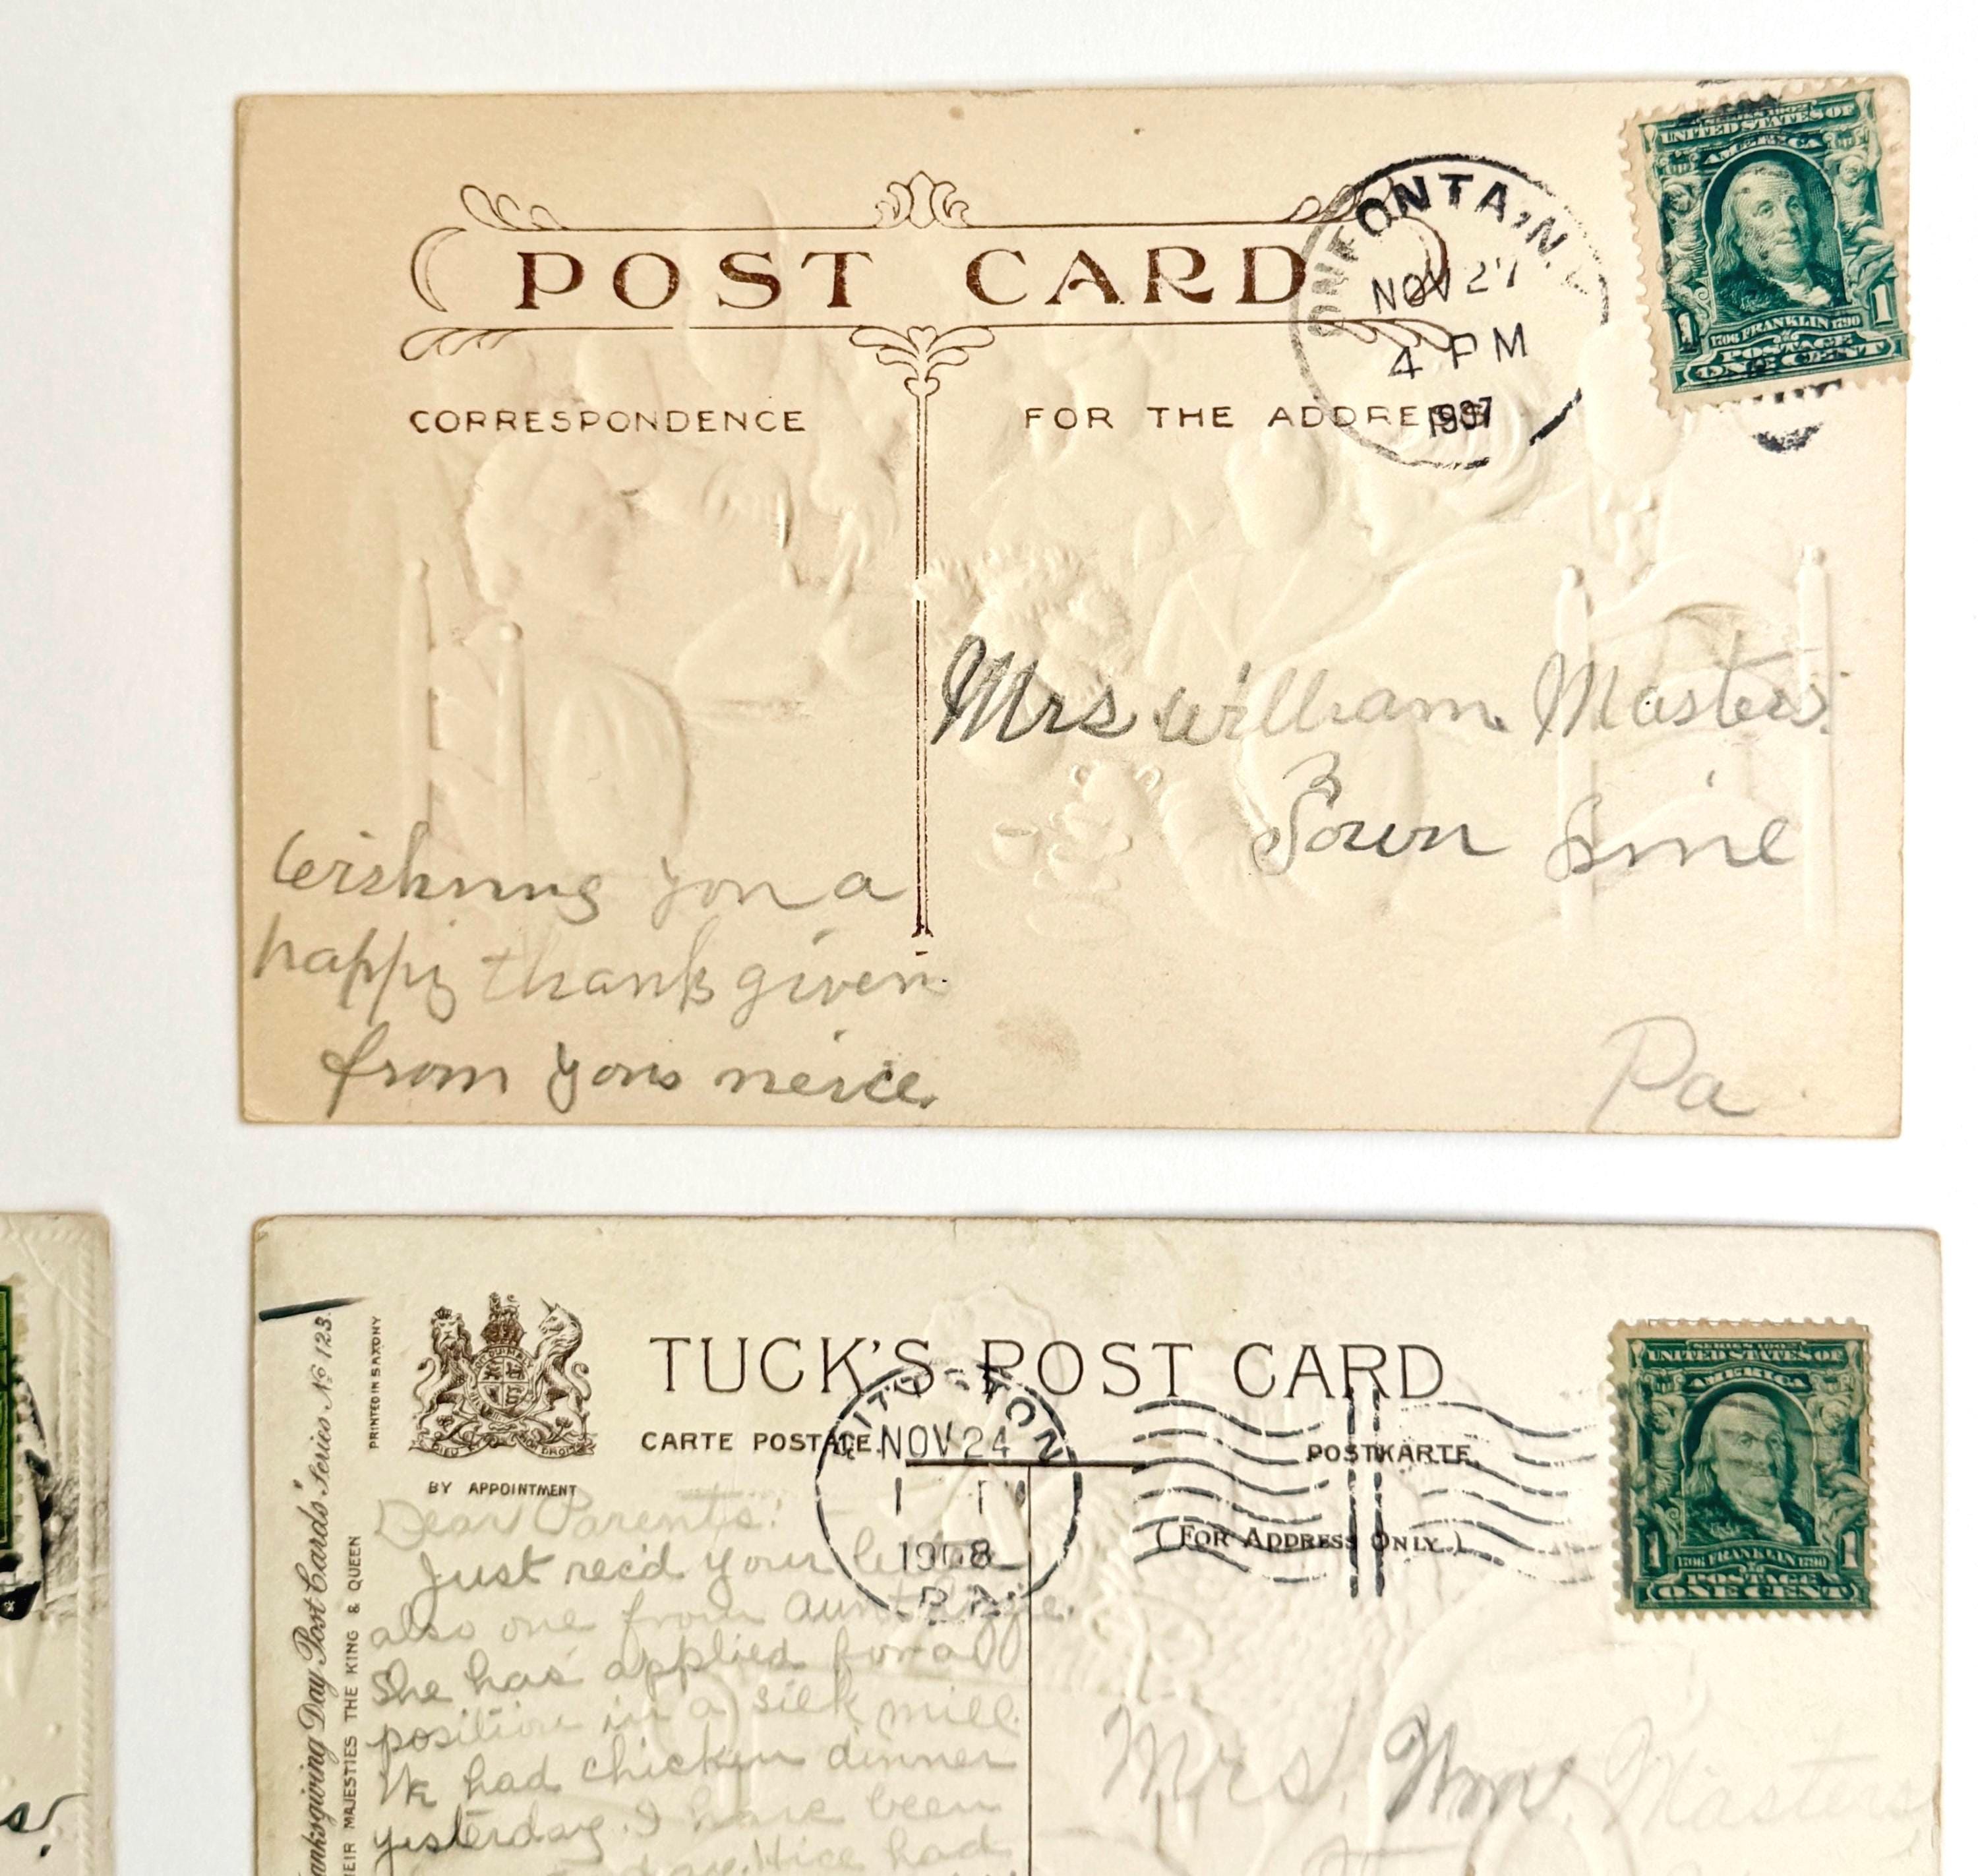 POST CARD
ONEONTA, N.Y.
NOV 27
4 PM
1907
SERIES 1902
UNITED STATES OF
AMERICA
1706 FRANKLIN 1790
POSTAGE
1 ONE CENT 1
CORRESPONDENCE
FOR THE ADDRESS
Mrs William Masters.
Town Line
Pa
wishing you a
happy thanksgiven
from yours neice.
TUCK'S POST CARD
CARTE POSTALE.
POSTKARTE.
(FOR ADDRESS ONLY.)
BY APPOINTMENT
PRINTED IN SAXONY
anksgiving Day Post Cards" Series No 123.
HEIR MAJESTIES THE KING & QUEEN
PITTSTON
NOV 24
1908
PA.
SERIES 1902
UNITED STATES OF
AMERICA
1706 FRANKLIN 1790
POSTAGE
1 ONE CENT 1
Dear Parents:-
Just rec'd your letter
also one from Aunt
She has applied for a
position in a silk mill.
We had chicken dinner
yesterday. I have been
had
Mrs. Wm. Masters
s.